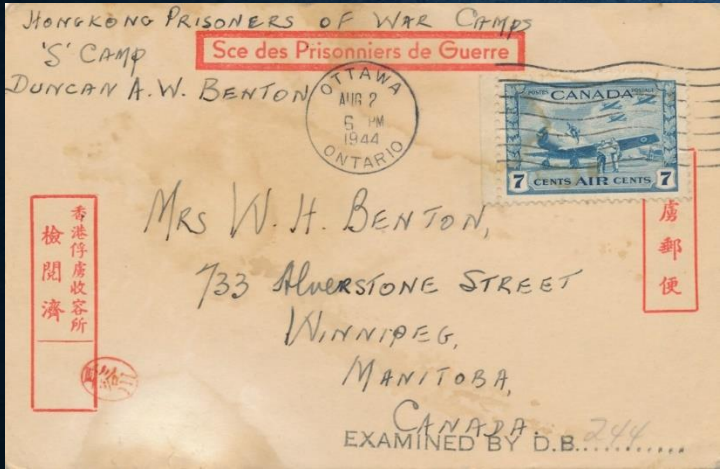 HONGKONG PRISONERS OF WAR CAMPS
'S' CAMP
Sce des Prisonniers de Guerre
DUNCAN A.W. BENTON
OTTAWA
AUG 2
6 PM
1944
ONTARIO
POSTES POSTAGE
CANADA
7 CENTS AIR CENTS 7
香港俘虜收容所
檢閲濟
虜郵便
MRS W. H. BENTON,
733 ALVERSTONE STREET
WINNIPEG,
MANITOBA,
CANADA.
EXAMINED BY D.B. 244